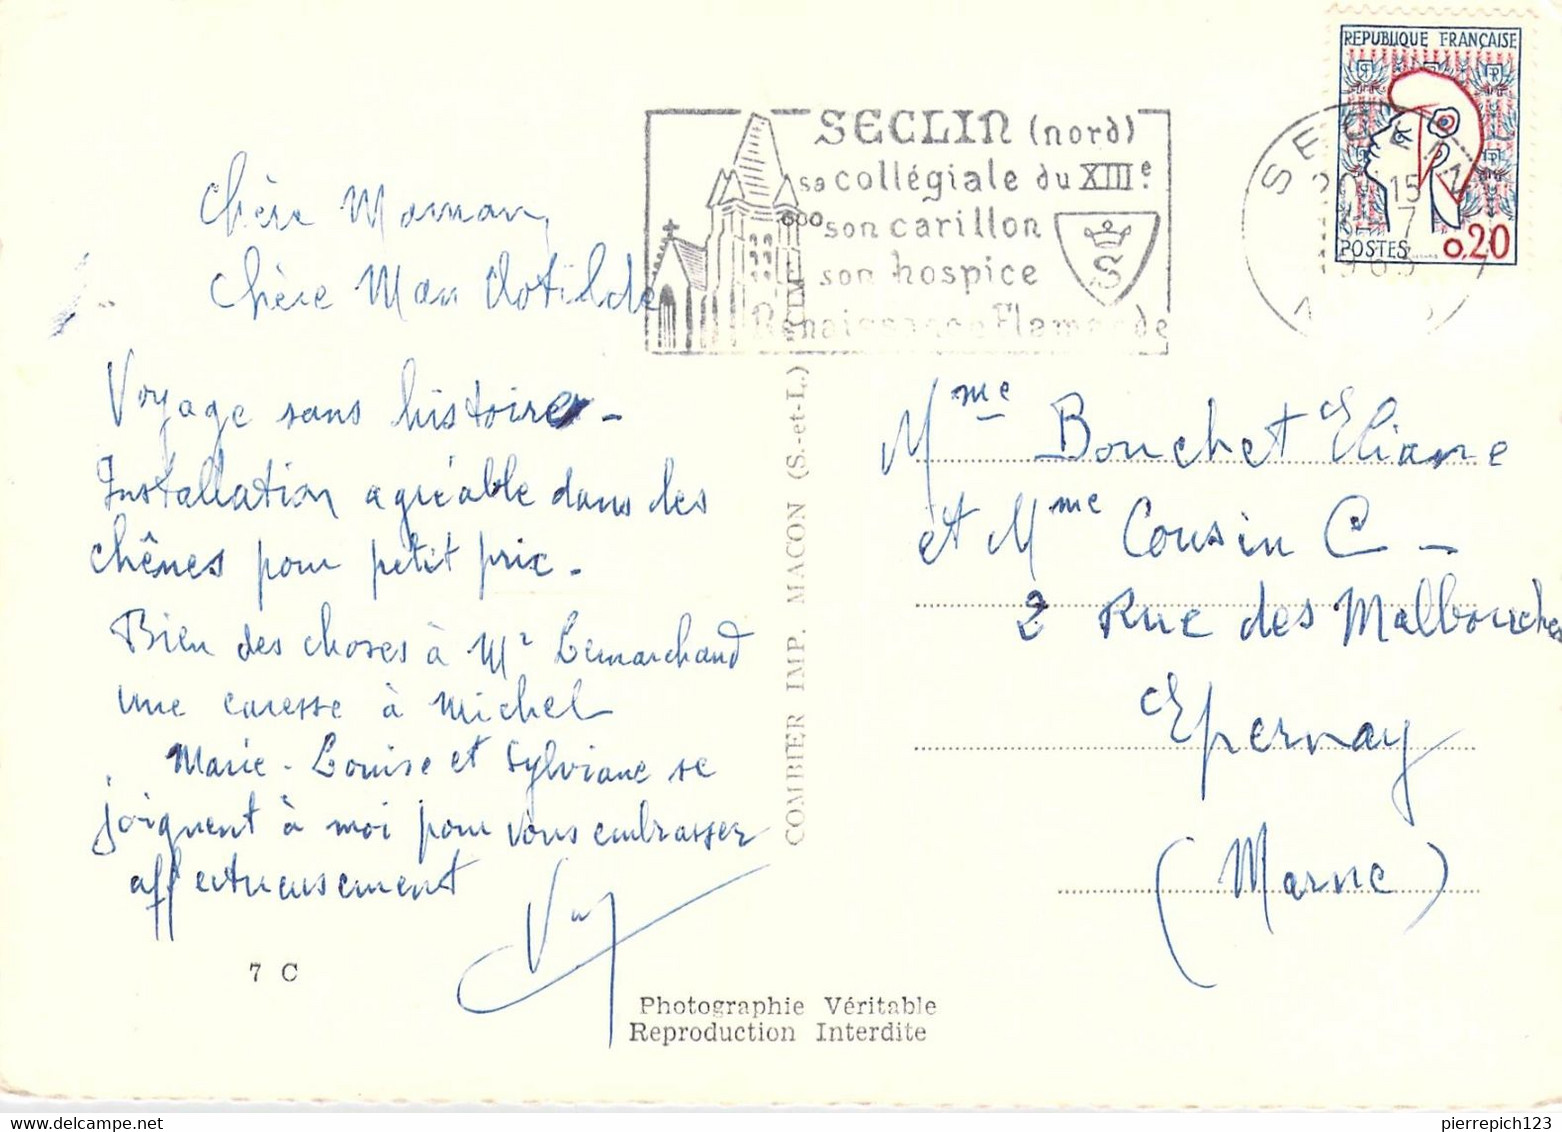 REPUBLIQUE FRANÇAISE
POSTES
0,20
SECLIN (nord)
sa collégiale du XIIIe.
son carillon
son hospice
Renaissance Flamande
S
SECLIN
1965
Chère Maman,
Chère Man Clotilde
Voyage sans histoires -
Installation agréable dans les
chênes pour petit prix.
Bien des choses à Mr Lemarchand
une caresse à Michel
Marie-Louise et Sylviane se
joignent à moi pour vous embrasser
affectueusement
7 C
COMBIER IMP. MACON (S.-et-L.)
Mme Bouchet Eliane
et Mme Cousin C -
2 Rue des Malbouches
Epernay
(Marne)
Photographie Véritable
Reproduction Interdite
pierrepich123